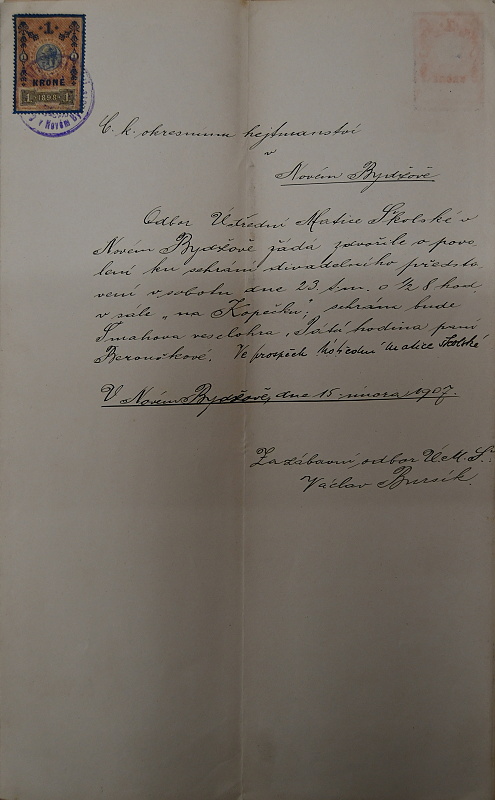 1
KRONE
1 1898 1
C. k. okresnímu hejtmanství
v
Novém Bydžově
Odbor Ústřední Matice Školské v
Novém Bydžově žádá zdvořile o povo-
lení ku sehrání divadelního předsta-
vení v sobotu dne 23. t.m. o ½ 8 hod.
v sále „na Kopečku", sehrána bude
Šmahova veselohra „Pátá hodina paní
Berouškové. Ve prospěch Ústřední Matice Školské
V Novém Bydžově, dne 15. února 1907.
Za zábavní odbor Ú.M.Š.
Václav Bursík.